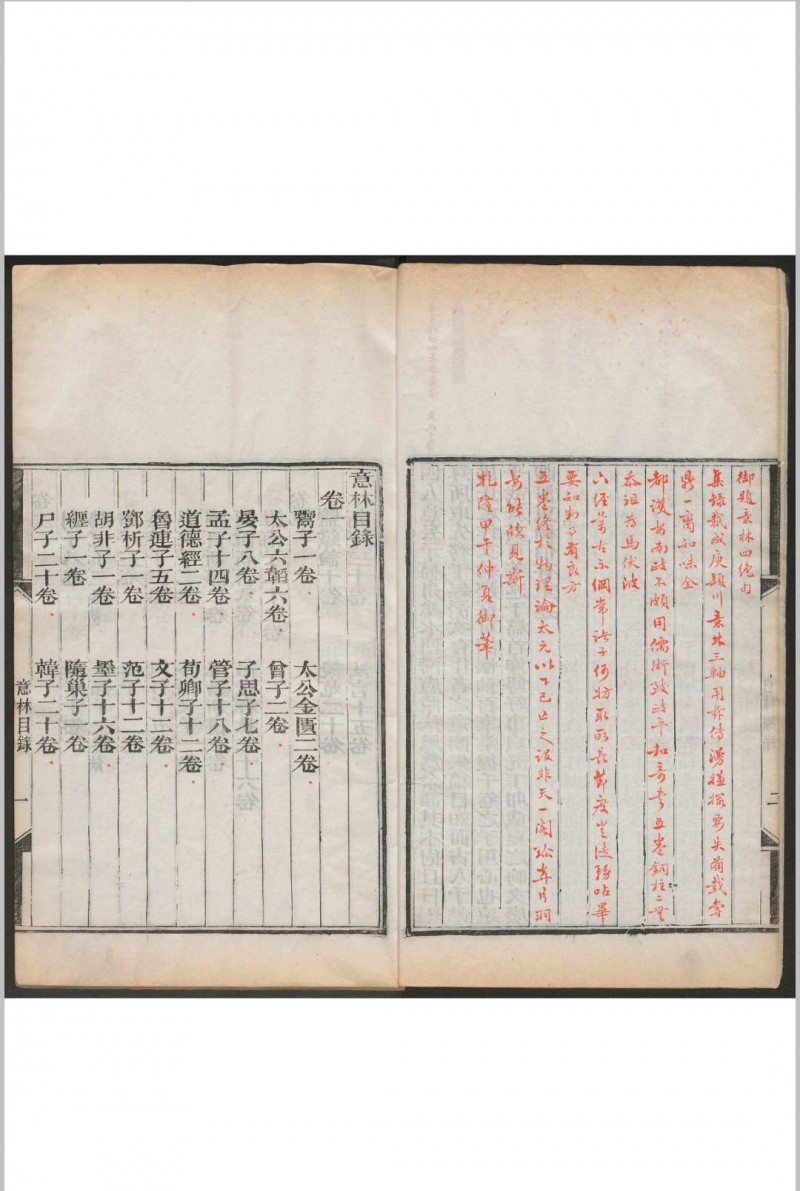 御題意林四絕句
集錄裁成庾潁川意林三軸用茲傳漫嫌撮要失備載嘗
鼎一臠知味全
都護安南政不頗用儒術致政平和奇書五卷銅柱二無
忝祖為馬伏波
六經萬古示綱常諸子何妨取所長節度豈徒務佔畢
要知制事有良方
五卷終於物理論太元以下已亡之設非天一閣珍弆片羽
安能欣見斯
乾隆甲午仲夏御筆
二
意林目錄
卷一
鬻子一卷 太公金匱二卷
太公六韜六卷 曾子二卷
晏子八卷 子思子七卷
孟子十四卷 管子十八卷
道德經二卷 荀卿子十二卷
魯連子五卷 文子十二卷
鄧析子一卷 范子十二卷
胡非子一卷 墨子十六卷
纏子一卷 隨巢子一卷
尸子二十卷 韓子二十卷
意林目錄 一